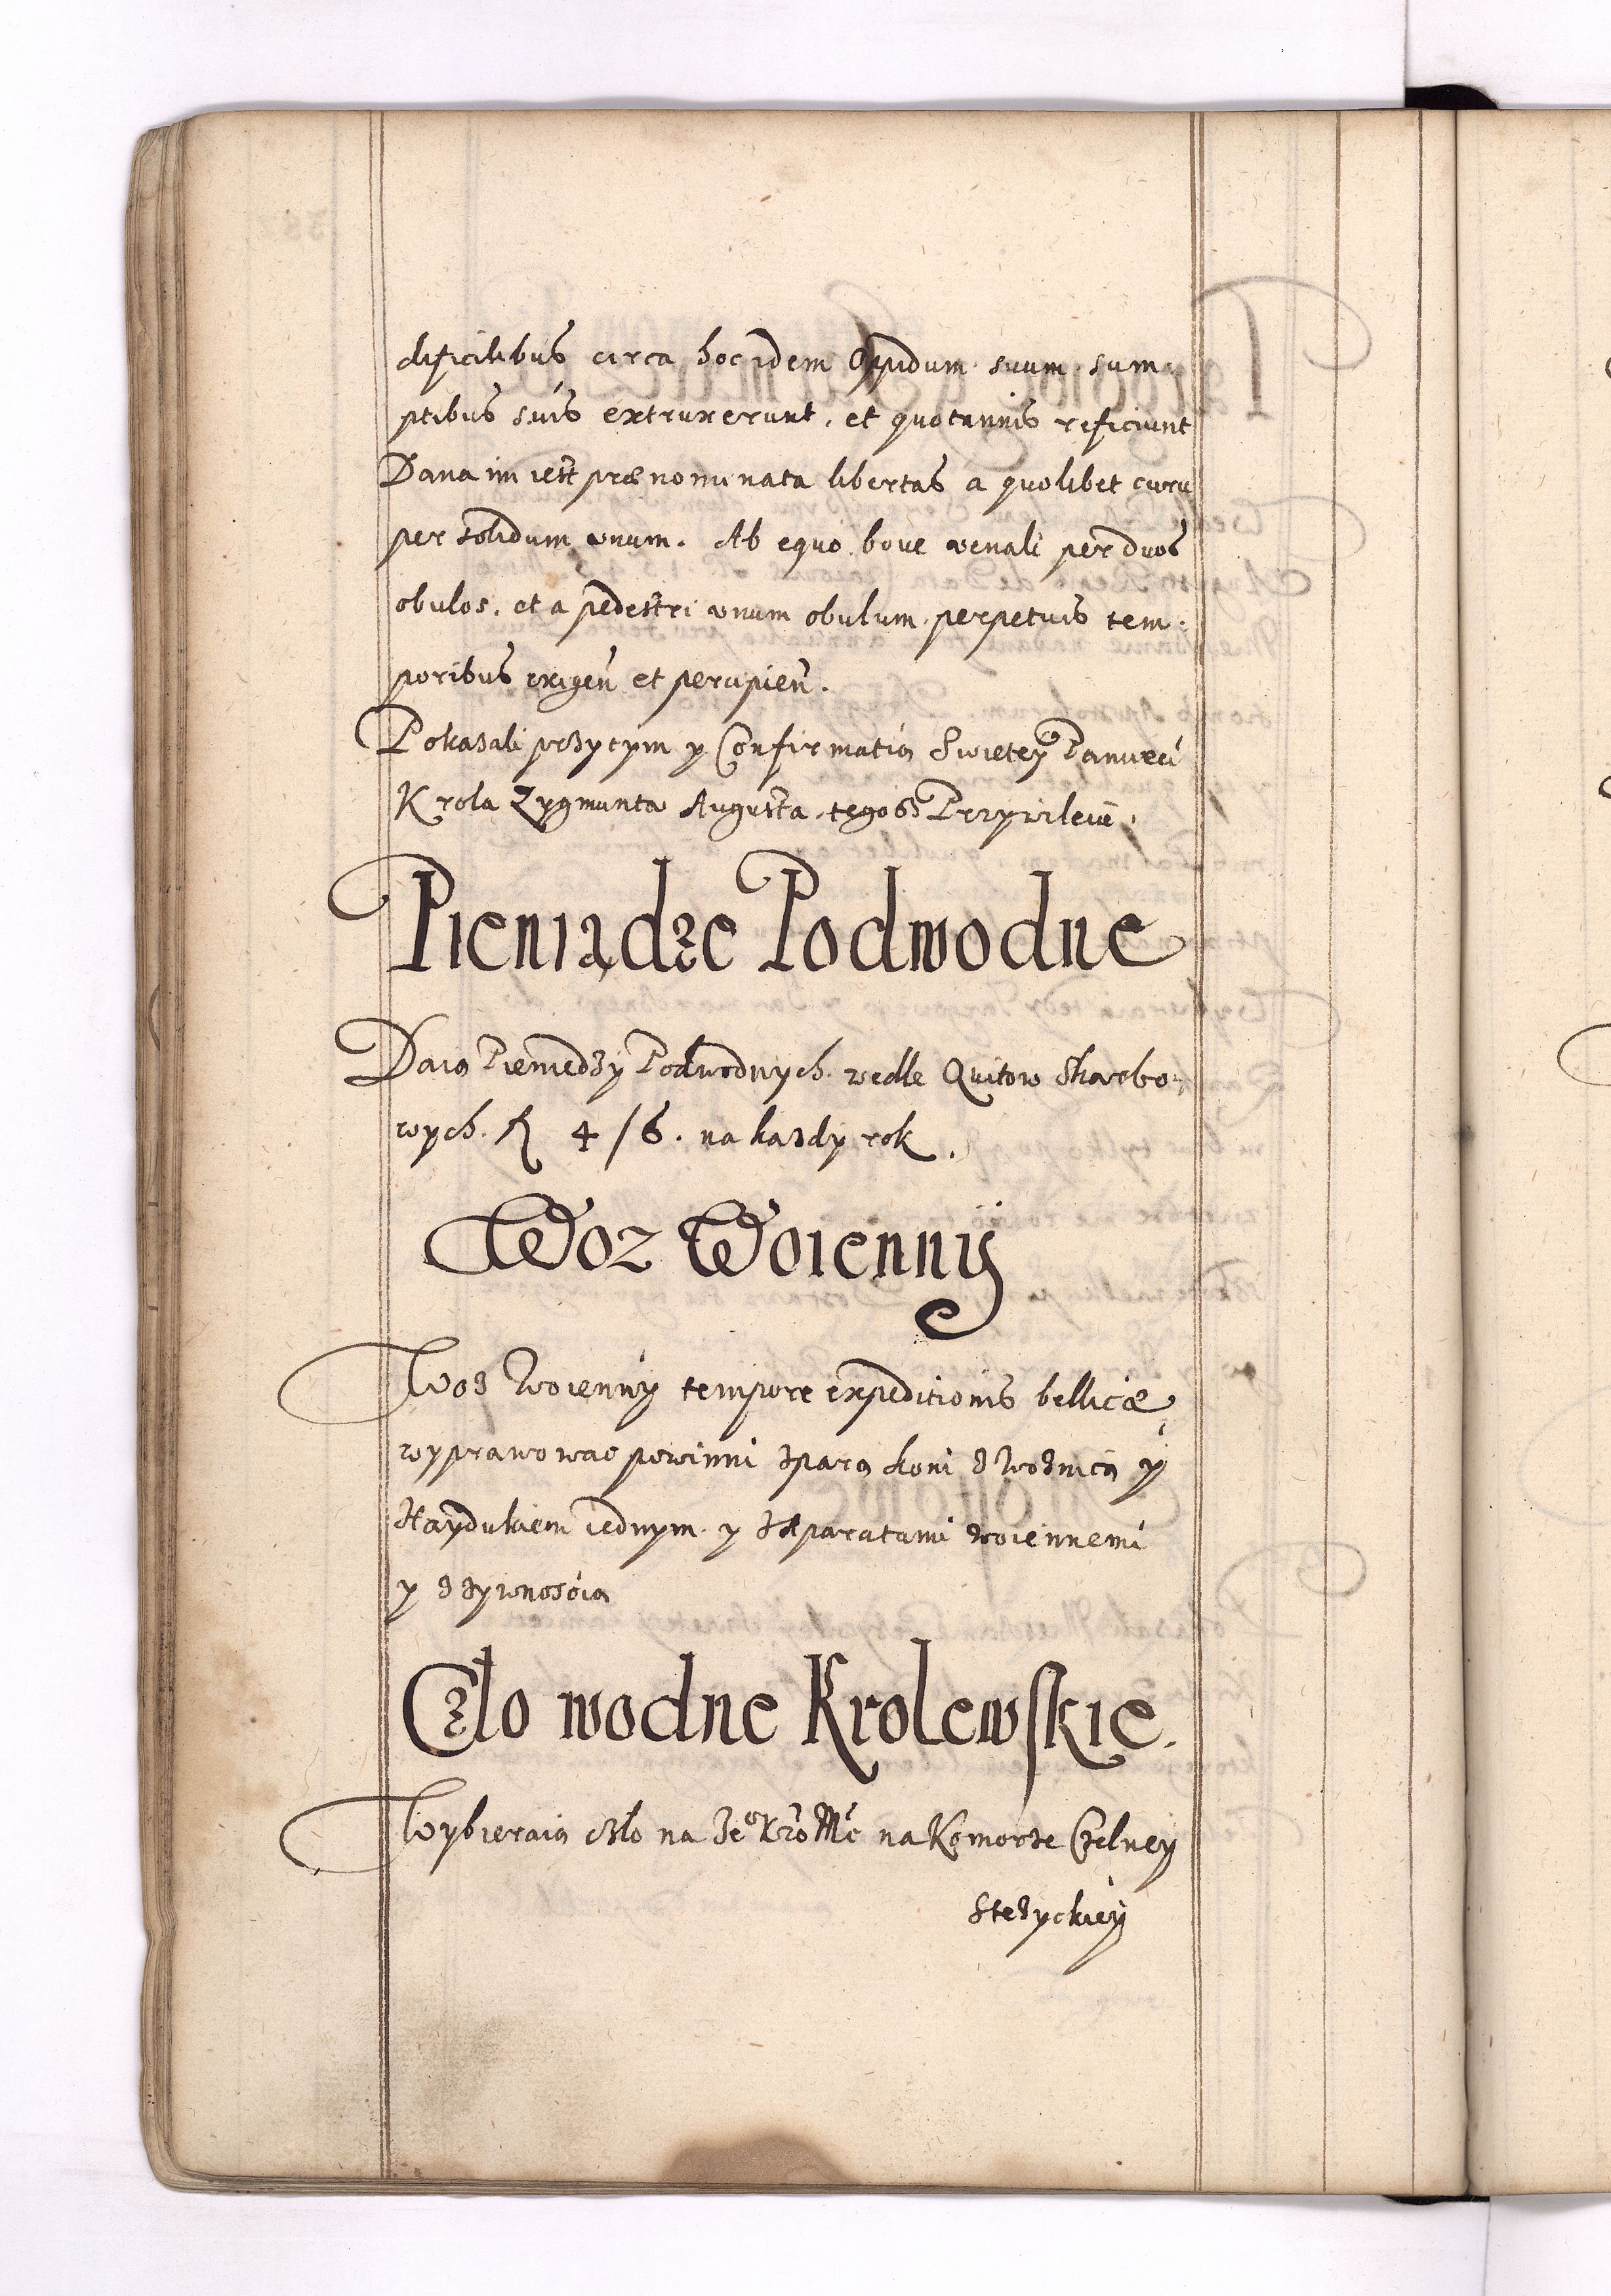 dificilibus circa hoc idem Oppidum suum sum-
ptibus suis extruxerunt, et quotannis reficiunt
Dana im iest prænominata libertas a quolibet curru
per solidum unum. Ab equo bove venali per duos
obulos, et a pedestri unum obulum, perpetuis tem-
poribus exigen et percipien.
Pokazali przytym y Confirmatią Swietey Pamieci
Krola Zygmunta Augusta, tegosz Przywileiu.
Pieniądze Podwodne
Daią Pieniedzy Podwodnych wedle Quitow Skarbo-
wych. 4/6. na kazdy rok.
Woz Woienny
Woz Woienny tempore expeditionis bellicæ
wyprawowac powinni zparą koni z Woznicą y
Haydukiem iednym y zAparatami woiennemi
y z zywnoscią
Czlo wodne Krolewskie.
Wybieraią czlo na Je° Kro Mc na Komorze Czelney
Stezyckiey